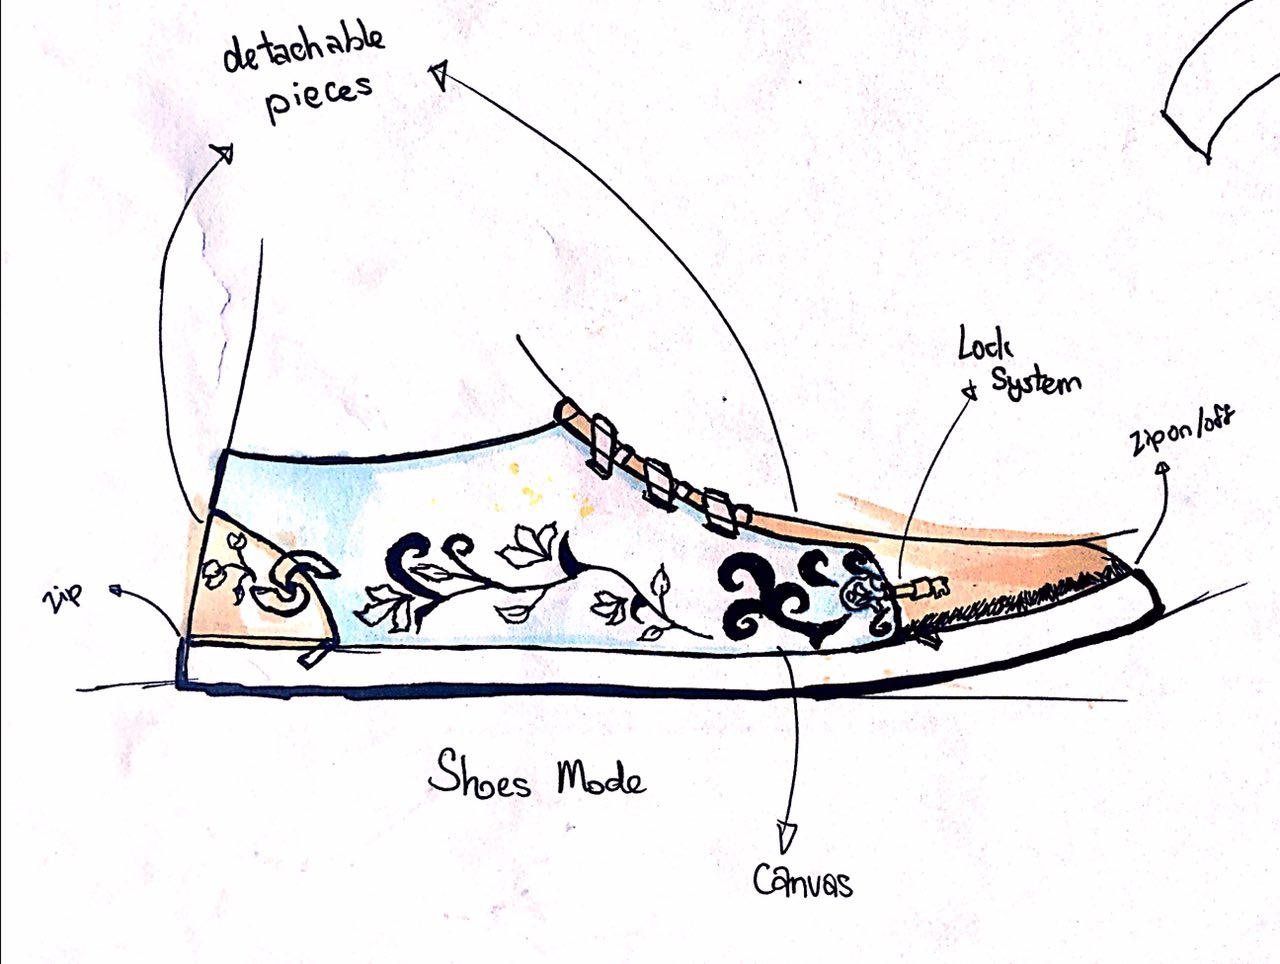 detachable
pieces
Lock
System
zip on/off
zip
Shoes Mode
Canvas